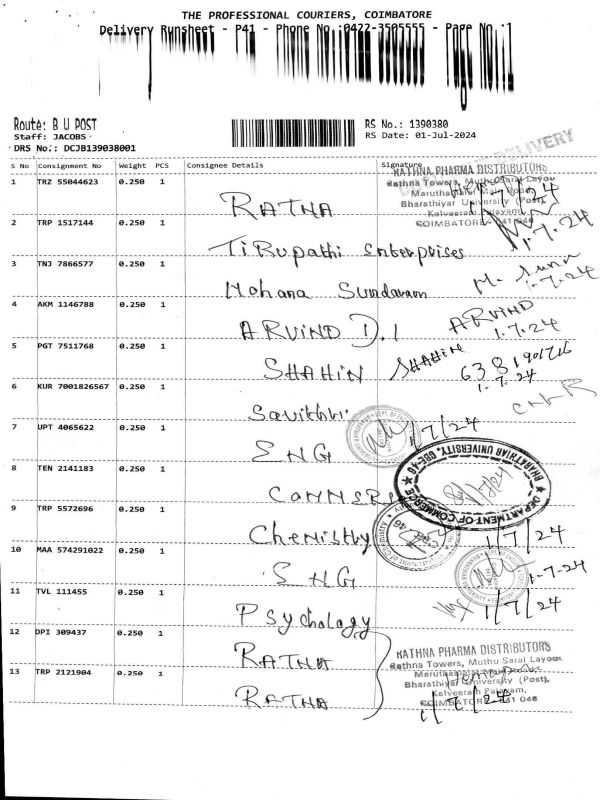 THE PROFESSIONAL COURIERS, COIMBATORE
Delivery Runsheet - P41 - Phone No.:0422-3505555 - Page No.:1
Route: B U POST
Staff: JACOBS
DRS No.: DCJB139038001
RS No.: 1390380
RS Date: 01-Jul-2024
DELIVERY
S No Consignment No Weight PCS Consignee Details Signature
1 TRZ 55044623 0.250 1 RATNA
RATHNA PHARMA DISTRIBUTORS
Rathna Towers, Muthu Sarai Layou
Bharathiyar University (Post),
Kalveeram Palayam,
COIMBATORE - 641 046
1/7/24
2 TRP 1517144 0.250 1 Tirupathi Enterprises 1.7.24
3 TNJ 7866577 0.250 1 Mohana Sundaram M. 1.7.24
4 AKM 1146788 0.250 1 ARVIND D.I ARVIND 1.7.24
5 PGT 7511768 0.250 1 SHAHIN SHAHIN 6381901716 1.7.24
6 KUR 7001826567 0.250 1 Savithri
7 UPT 4065622 0.250 1 ENG 1/7/24
8 TEN 2141183 0.250 1
BHARATHIAR UNIVERSITY, CBE-46
DEPARTMENT OF COMMERCE
9 TRP 5572696 0.250 1 Chemistry 1/7/24
10 MAA 574291022 0.250 1 ENG 1.7.24
11 TVL 111455 0.250 1 Psychology 1/7/24
12 DPI 309437 0.250 1 RATNA
13 TRP 2121904 0.250 1 RATNA
RATHNA PHARMA DISTRIBUTORS
Rathna Towers, Muthu Sarai Layou
Bharathiyar University (Post),
Kalveeram Palayam,
COIMBATORE - 641 046
1/7/24